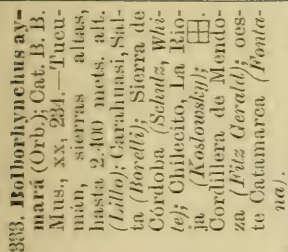 383. Bolborhynchus ay-
mará (Orb.); Cat. B. B.
Mus., xx, 234.—Tucu-
mán, sierras altas,
hasta 2.400 mets. alt.
(Lillo); Carahuasi, Sal-
ta (Borelli); Sierra de
Córdoba (Schulz, Whi-
te); Chilecito, La Rio-
ja (Koslowsky);
Cordillera de Mendo-
za (Fitz Gerald); oes-
te Catamarca (Fonta-
na).